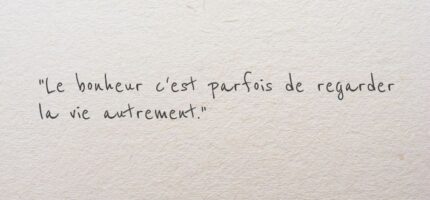 "Le bonheur c'est parfois de regarder
la vie autrement."